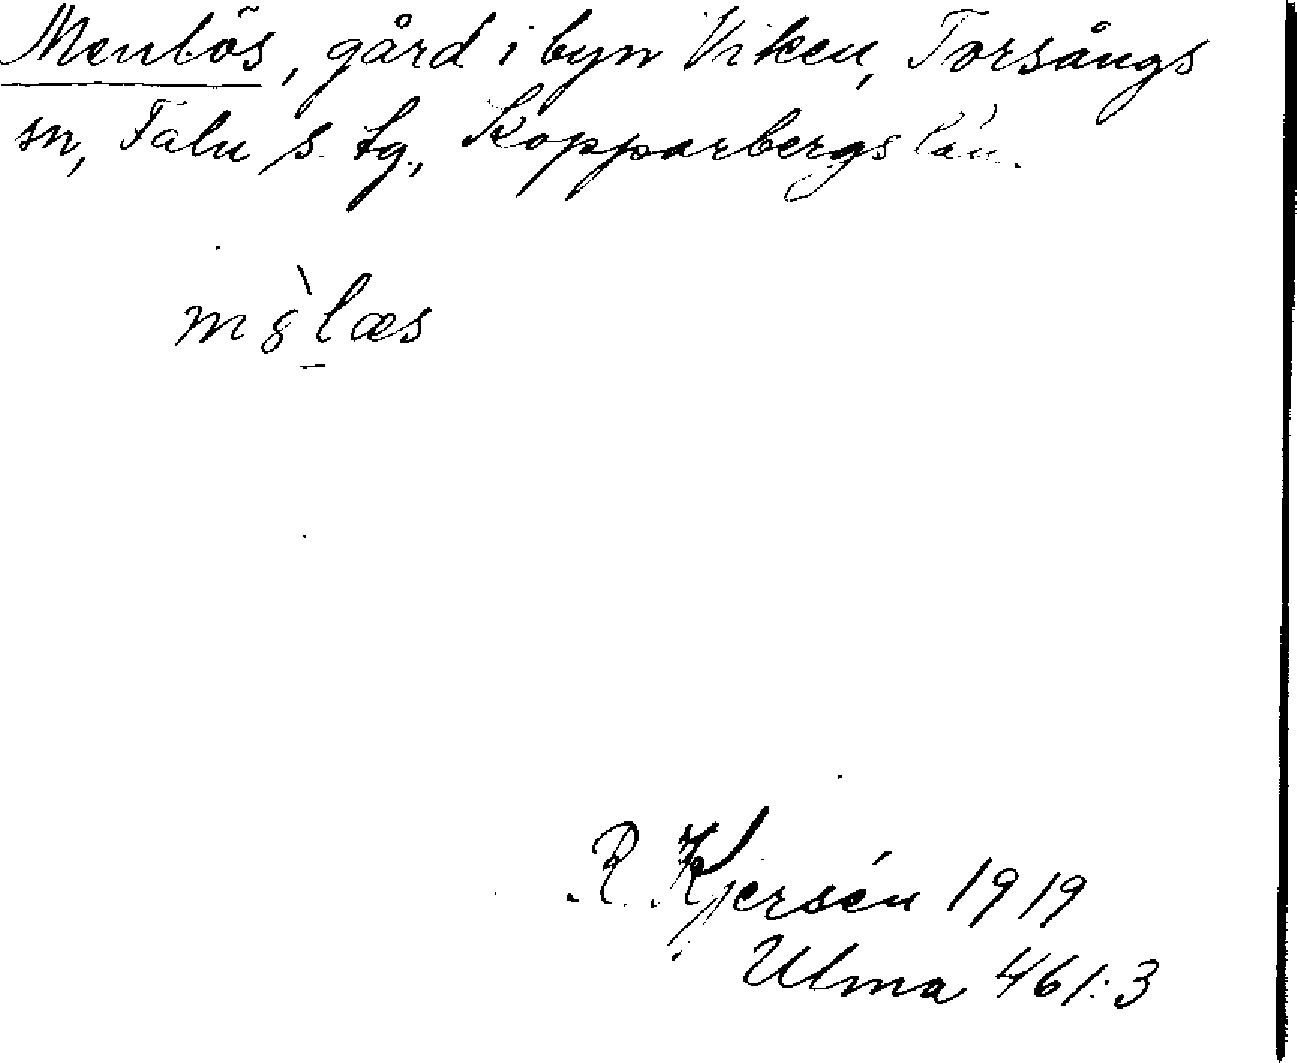 Menlös, gård i byn Viken, Torsångs
sn, Falu s. tg., Kopparbergs län.
R. Kjersén 1919
Ulma 461:3